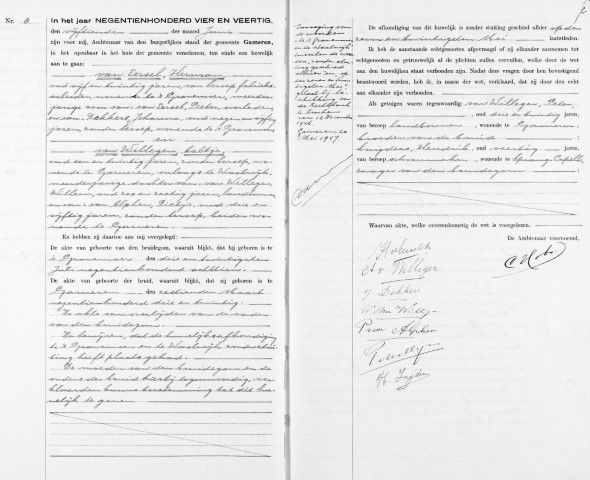 Nr. 8.
In het jaar NEGENTIENHONDERD VIER EN VEERTIG,
den vijftienden der maand Juni
zijn voor mij, Ambtenaar van den burgerlijken stand der gemeente Gameren,
in het openbaar in het huis der gemeente verschenen, ten einde een huwelijk
aan te gaan:
van Eersel, Herman,
oud vijf en twintig jaren, van beroep fabrieks-
arbeider, wonende te 's Gravenmoer, meerder-
jarige zoon van: van Eersel, Pieter, overleden
en van Dekkers, Johanna, oud negen en vijftig
jaren, zonder beroep, wonende te 's Gravenmoer
en
van Willigen, Aaltje,
oud een en twintig jaren, zonder beroep, wo-
nende te Gameren, onlangs te Waalwijk,
meerderjarige dochter van: van Willigen,
Willem, oud zes en zestig jaren, landbouwer
en van: van Alphen, Pietje, oud drie en
vijftig jaren, zonder beroep, beiden wo-
nende te Gameren.
En hebben zij daartoe aan mij overgelegd:
De akte van geboorte van den bruidegom, waaruit blijkt, dat hij geboren is te
's Gravenmoer den drie en twintigsten
Juli negentienhonderd achttien.
De akte van geboorte der bruid, waaruit blijkt, dat zij geboren is te
Gameren den zestienden Maart
negentienhonderd drie en twintig.
De akte van overlijden van de vader
van den bruidegom.
De bewijzen, dat de huwelijksafkondiging
te 's Gravenmoer en te Waalwijk zonder stui-
ting heeft plaats gehad.
De moeder van den bruidegom en de
ouders der bruid hierbij tegenwoordig, ver-
klaarden hunne toestemming tot dit hu-
welijk te geven.
De afkondiging van dit huwelijk is zonder stuiting geschied alhier op den
een en twintigsten Mei laatstleden.
Ik heb de aanstaande echtgenooten afgevraagd of zij elkander aannemen tot
echtgenooten en getrouwelijk al de plichten zullen vervullen, welke door de wet
aan den huwelijken staat verbonden zijn. Nadat deze vragen door hen bevestigend
beantwoord werden, heb ik, in naam der wet, verklaard, dat zij door den echt
aan elkander zijn verbonden.
Als getuigen waren tegenwoordig: van Willigen, Peter,
oud drie en twintig jaren,
van beroep landbouwer, wonende te Gameren,
broeder van de bruid en
Hendrik, oud veertig jaren,
van beroep schoenmaker, wonende te Sprang-Capelle,
zwager van den bruidegom
Waarvan akte, welke overeenkomstig de wet is voorgelezen.
De Ambtenaar voornoemd,
Gameren, 20
Mei 1947.
A v Willigen
J Dekkers
P van Alphen